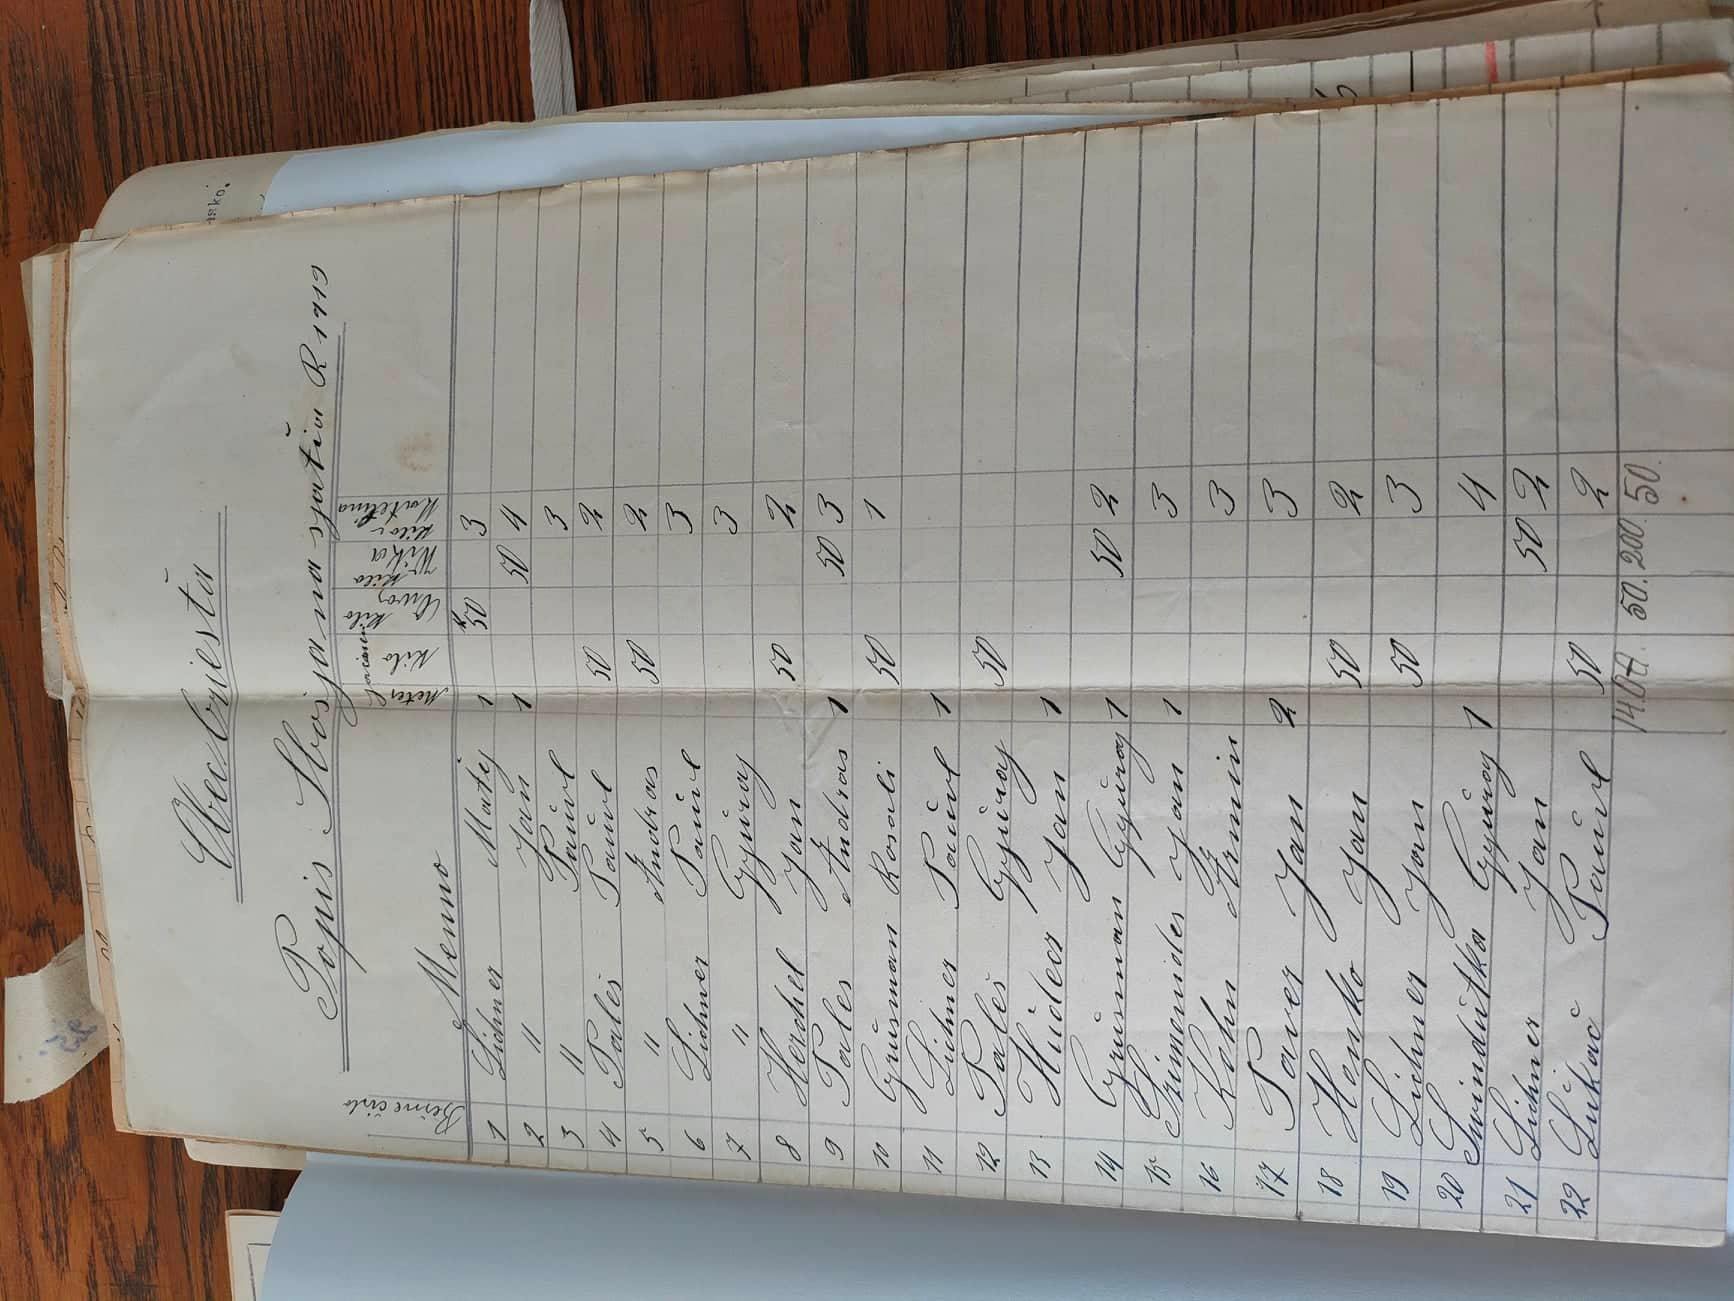 Obecbriestie
Popis Zbozja na sjatia R 1919
Bežne čislo Menno Meter Jačmen Kilo Kilo Owos Kilo Wika Kilo
1 Lichner Matij 1 50 3
2 " Jan 1 50 4
3 " Pauvl 3
4 Paleš Pauvl 50 2
5 " Andras 50 2
6 Lichner Pauvl 3
7 " Gyüray 3
8 Herchel Jan 50 2
9 Paleš Andras 1 50 3
10 Grüsman Rosali 50 1
11 Lichner Pauvl 1
12 Paleš Gyüray 50
13 Hudecz Jan 1
14 Grüsman Gyüray 1 50 2
15 Jan 1 3
16 Kohn Armin 3
17 Paver Jan 2 3
18 Honko Jan 50 2
19 Lichner Jan 50 3
20 Swindutka Gyüray 1 4
21 Lichner Jan 50 2
22 Lukač Pauvl 50 2
50. 200. 50.